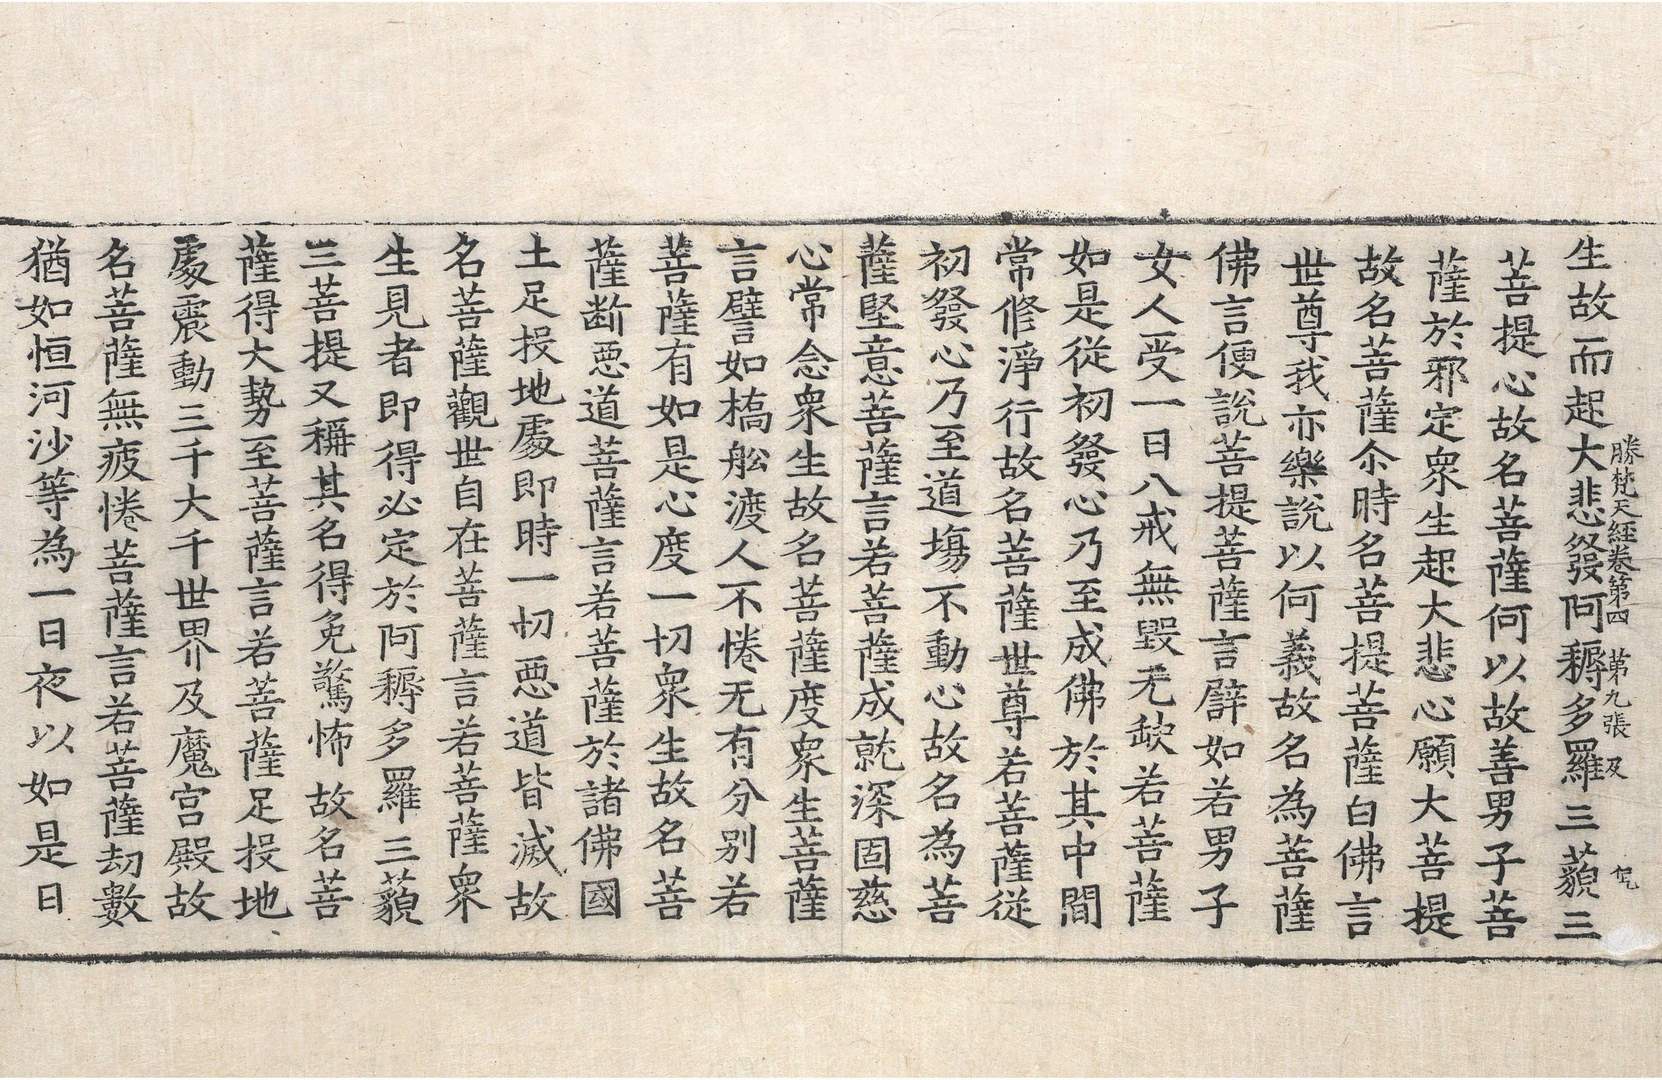 勝梵天經卷第四　第九張　及
生故而起大悲發阿耨多羅三藐三
菩提心故名菩薩何以故善男子菩
薩於邪定衆生起大悲心願大菩提
故名菩薩尒時名菩提菩薩白佛言
世尊我亦樂說以何義故名為菩薩
佛言便說菩提菩薩言譬如若男子
女人受一日八戒無毀无缺若菩薩
如是從初發心乃至成佛於其中間
常修淨行故名菩薩世尊若菩薩從
初發心乃至道場不動心故名為菩
薩堅意菩薩言若菩薩成就深固慈
心常念衆生故名菩薩度衆生菩薩
言譬如橋舩渡人不惓无有分别若
菩薩有如是心度一切衆生故名菩
薩断惡道菩薩言若菩薩於諸佛國
土足投地處即時一切惡道皆滅故
名菩薩觀世自在菩薩言若菩薩衆
生見者即得必定於阿耨多羅三藐
三菩提又稱其名得免驚怖故名菩
薩得大勢至菩薩言若菩薩足投地
處震動三千大千世界及魔宫殿故
名菩薩無疲惓菩薩言若菩薩劫數
猶如恒河沙等為一日夜以如是日